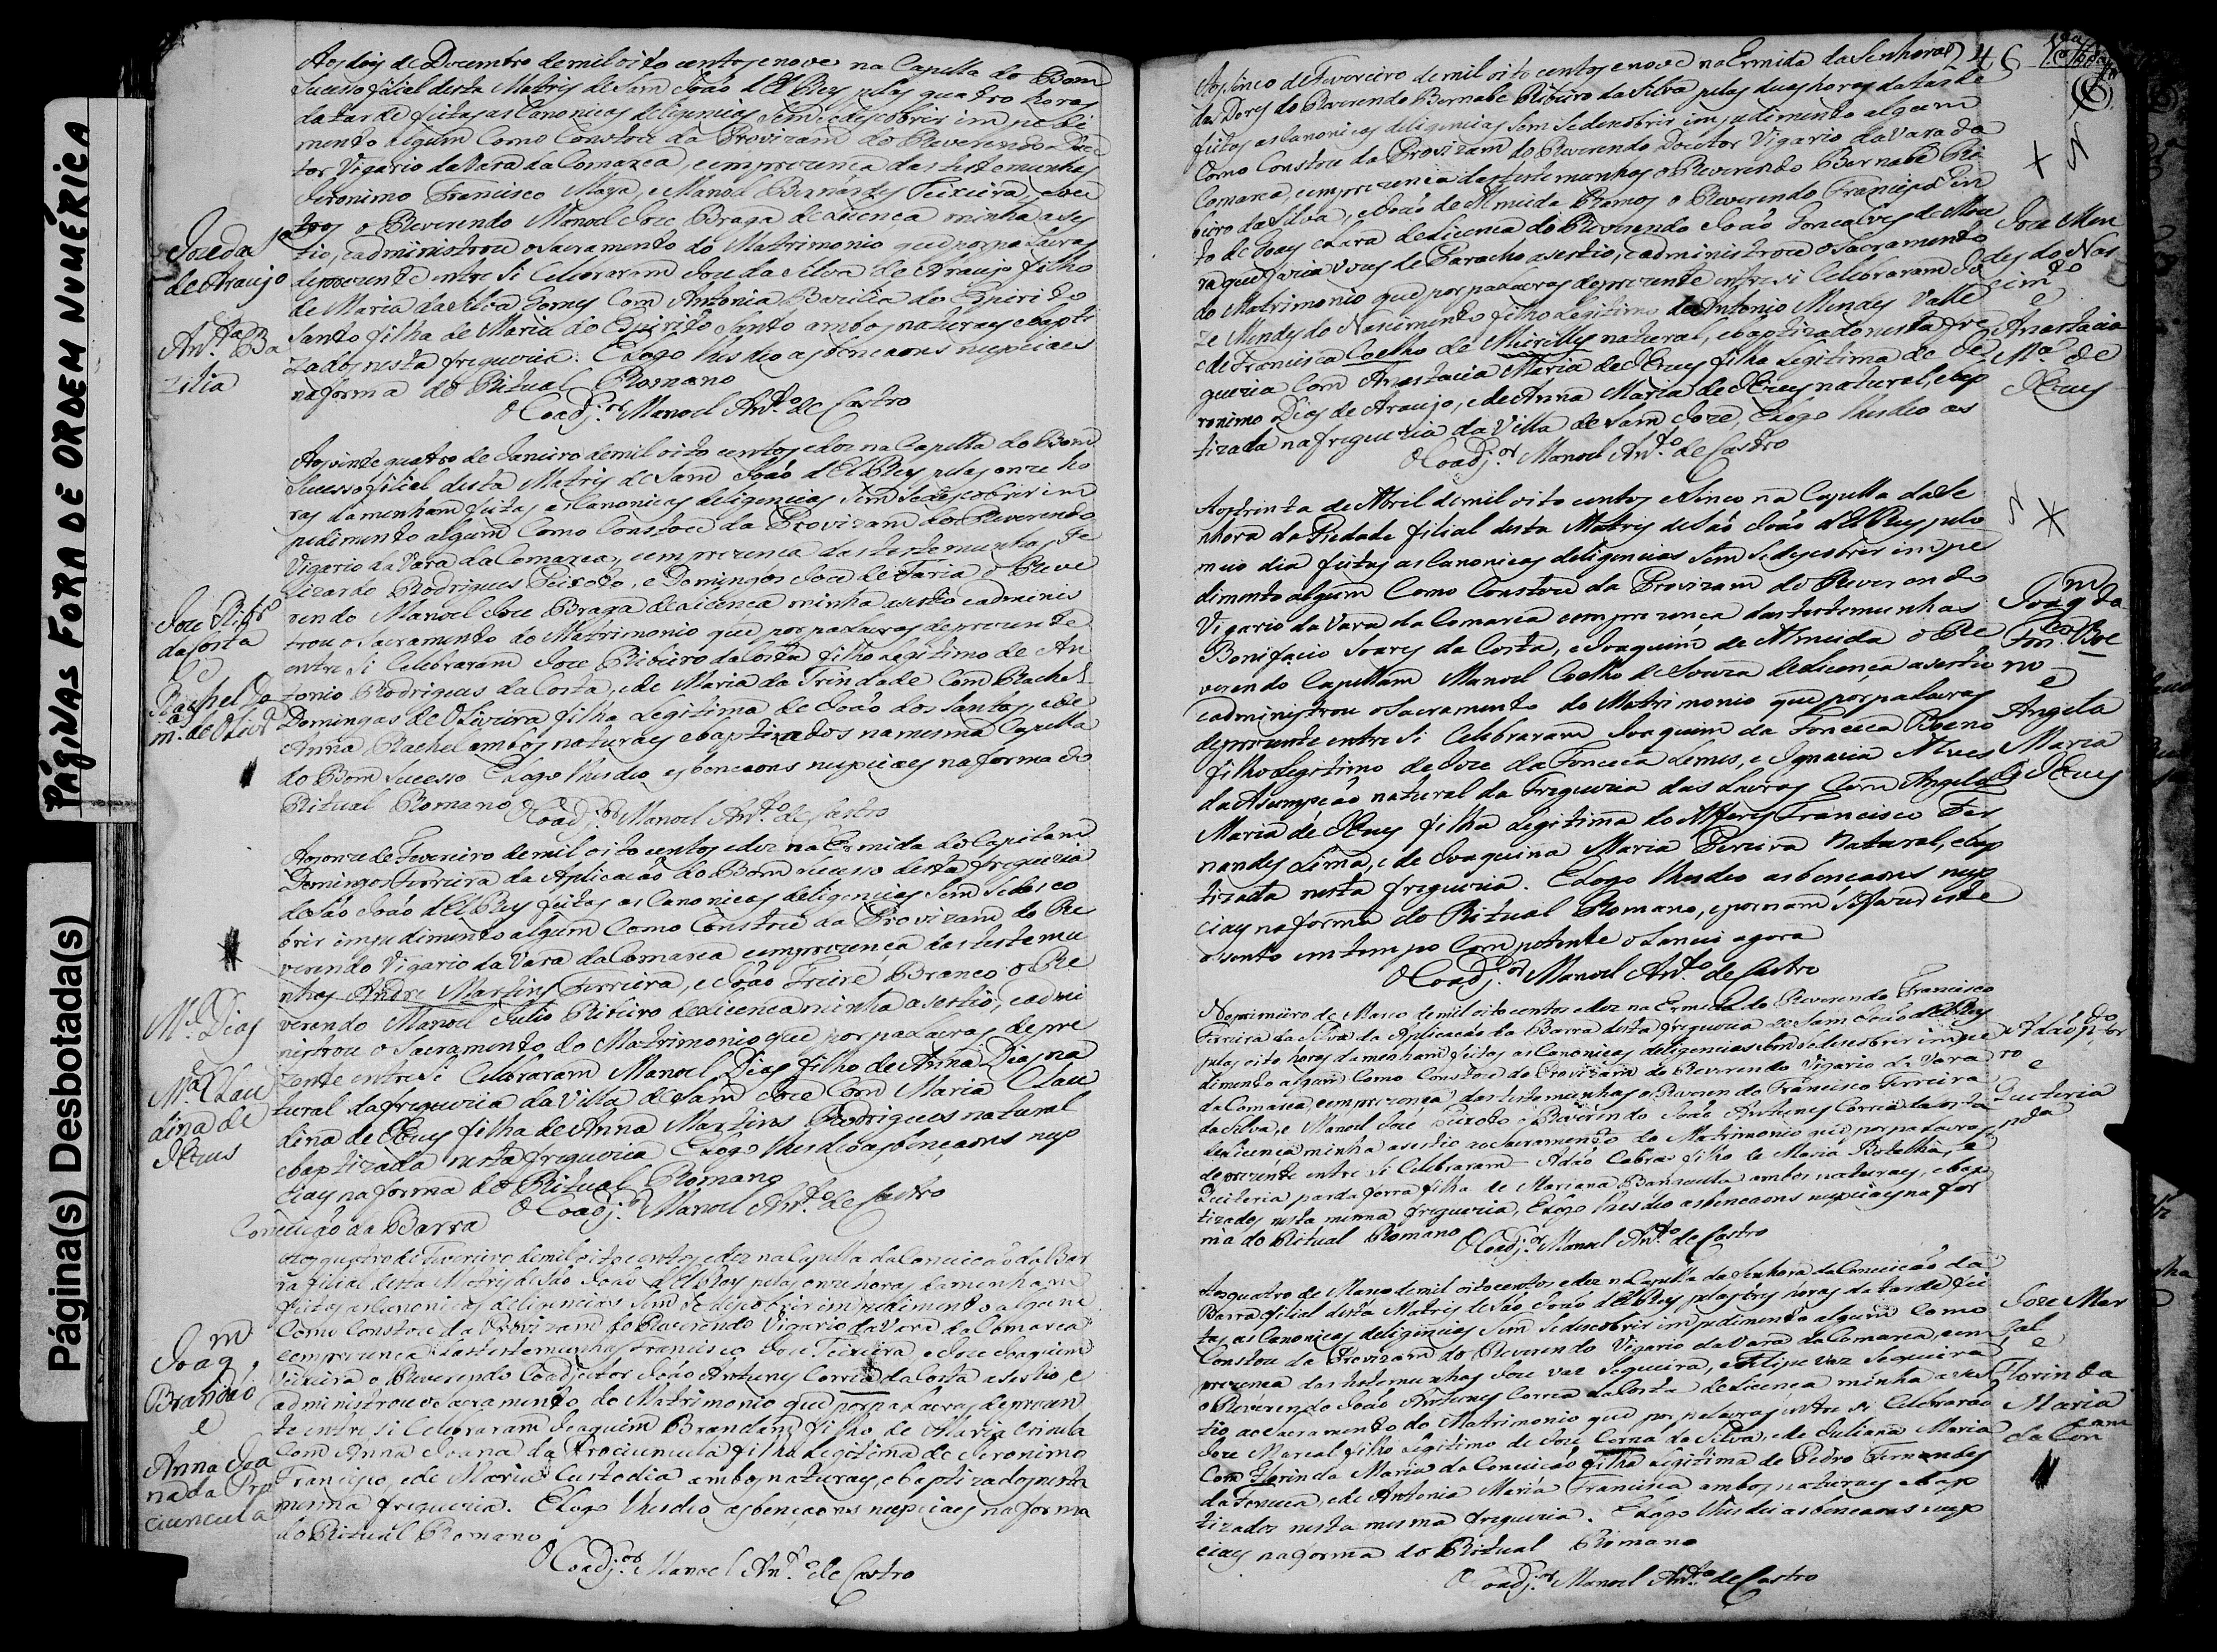 PÁGINAS FORA DE ORDEM NUMÉRICA
Página(s) Desbotada(s)
Aos dois de Dezembro de mil oito centos e nove na Capella do Bom
Sucesso filial desta Matris de Sam João d'El Rey pelas quatro horas
da tarde feitas as Canonicas deligencias sem se descobrir impedi
mento algum Como Constou da Provizam do Reverendo Dou
tor Vigario da Vara da Comarca, e em prezença das testemunhas
Jeronimo Francisco Maya, e Manoel Bernardes Teixeira, e
o Reverendo Manoel Joze Braga de Licença minha asis
tio, e administrou o Sacramento do Matrimonio que por palavras
de prezente entre si Celebraram Joze da Silva de Araujo filho
de Maria da Silva Gomes Com Antonia Bazilia do Espirito
Santo filha de Maria do Espirito Santo ambos naturaes e bapti
zados nesta freguezia. E logo lhes deo as bençaons nupciaes
na forma do Ritual Romano
O Coadj.or Manoel Ant.o de Castro
Joze da Sa
de Araujo
Ant.a Ba
zilia
Aos vinte quatro de Janeiro de mil oito centos e dez na Capella do Bom
Sucesso filial desta Matris de Sam João d'El Rey pelas onze ho
ras da menham feitas as Canonicas deligencias sem se descobrir im
pedimento algum Como Constou da Provizam do Reverendo
Vigario da Vara da Comarca, e em prezença das testemunhas Fe
lizardo Rodrigues Peixoto, e Domingos Joze de Faria o Reve
rendo Manoel Joze Braga de Licença minha asistio e adminis
trou o Sacramento do Matrimonio que por palavras de prezente
entre si Celebraram Joze Ribeiro da Costa filho Legitimo de An
tonio Rodrigues da Costa, e de Maria da Trindade Com Rachel
Domingas de Oliveira filha Legitima de João dos Santos, e de
Anna Rachel ambos naturaes e baptizados na mesma Capella
do Bom Sucesso E logo lhes deo as bençaons nupciaes na forma do
Ritual Romano
O Coadj.or Manoel Ant.o de Castro
Joze Rib.o
da Costa
e
Rachel Do
m.as de Oliv.ra
Aos onze de Fevereiro de mil oito centos e dez na Ermida do Capitam
Domingos Ferreira da Aplicação do Bom Sucesso desta freguezia
de São João d'El Rey feitas as Canonicas deligencias sem se desco
brir impedimento algum Como Constou da Provizam do Re
verendo Vigario da Vara da Comarca e em prezença das testemu
nhas Andre Martins Ferreira, e João Freire Branco o Re
verendo Manoel Julio Ribeiro de Licença minha asestio, e admi
nistrou o Sacramento do Matrimonio que por palavras de pre
zente entre si Celebraram Manoel Dias filho de Anna Dias na
tural da freguezia da Villa de Sam Joze Com Maria Clau
dina de Jezus filha de Anna Martins Rodrigues natural
e baptizada nesta freguezia E logo lhes deo as bençaons nup
ciaes na forma do Ritual Romano
O Coadj.or Manoel Ant.o de Castro
M.el Dias
M.a Clau
dina de
Jezus
Conceição da Barra
Aos quatro de Fevereiro de mil oito centos e dez na Capella da Conceição da Bar
ra filial desta Matris de São João d'El Rey pelas onze horas da menham
feitas as Canonicas deligencias sem se descobrir impedimento algum
Como Constou da Provizam do Reverendo Vigario da Vara da Comarca
e em prezença das testemunhas Francisco Joze Teixeira, e Joze Joaquim
Vieira o Reverendo Coadjutor João Antunes Correa da Costa asestio, e
administrou o Sacramento do Matrimonio que por palavras de prezen
te entre si Celebraram Joaquim Brandam filho de Maria Crioula
Com Anna Joana da Prociuncula filha Legitima de Jeronimo
Francisco, e de Maria Custodia ambos naturaes, e baptizados nesta
mesma freguezia. E logo lhes deo as bençaons nupciaes na forma
do Ritual Romano
O Coadj.or Manoel Ant.o de Castro
Joaq.m
Brandão
e
Anna Joa
na da Pro
ciuncula
246
Aos sinco de Fevereiro de mil oito centos e nove na Ermida da Senhora
das Dores do Reverendo Bernabe Ribeiro da Silva pelas duas horas da tarde
feitas as Canonicas deligencias sem se descobrir impedimento algum
Como Constou da Provizam do Reverendo Doutor Vigario da Vara da
Comarca, e em prezença das testemunhas o Reverendo Barnabe Ri
beiro da Silva, e João de Almeida Ramos o Reverendo Francisco Pin
to de Goes e Lara de Licença do Reverendo João Gonçalves de Mou
ra que fazia vezes de Paracho asestio, e administrou o Sacramento
do Matrimonio que por palavras de prezente entre si Celebraram Jo
ze Mendes do Nascimento filho Legitimo de Antonio Mendes Valle
e de Francisca Coelho de Meirelles natural, e baptizado nesta fre
guezia Com Anastacia Maria de Jezus filha Legitima de Je
ronimo Dias de Araujo, e de Anna Maria de Jezus natural, e bap
tizada na freguezia da Villa de Sam Joze, E logo lhes deo as
O Coadj.or Manoel Ant.o de Castro
Joze Men
des do Nas
cim.to
e
Anastacia
M.a de
Jezus
Aos trinta de Abril de mil oito centos e Sinco na Capella da Se
nhora da Piedade filial desta Matris de São João d'El Rey pelo
meio dia feitas as Canonicas deligencias sem se descobrir impe
dimento algum Como Constou da Provizam do Reverendo
Vigario da Vara da Comarca e em prezença das testemunhas
Bonifacio Soares da Costa, e Joaquim de Almeida o Re
verendo Capellam Manoel Coelho de Souza de Licença asestio
e administrou o Sacramento do Matrimonio que por palavras
de prezente entre si Celebraram Joaquim da Fonceca Boeno
filho Legitimo de Joze da Fonceca Lemes, e Ignacia Alves
da Asumpção natural da Freguezia das Lavras Com Angela
Maria de Jezus filha Legitima do Alferes Francisco Fer
nandes Lima, e de Joaquina Maria Pereira Natural, e bap
tizada nesta freguezia. E logo lhes deo as bençaons nup
ciaes na forma do Ritual Romano, e por nam se fazer este
asento em tempo Competente o Lancei agora
O Coadj.or Manoel Ant.o de Castro
Joaq.m da
Fon.ca Boe
no
e
Angela
Maria
de Jezus
No primeiro de Março de mil oito centos e dez na Ermida do Reverendo Francisco
Ferreira da Silva da Aplicacão da Barra desta freguezia de Sam João d'El Rey
pelas oito horas da menham feitas as Canonicas deligencias sem se descobrir impe
dimento algum Como Constou da Provizam do Reverendo Vigario da Vara
da Comarca, e em prezença das testemunhas o Reverendo Francisco Ferreira
da Silva, e Manoel José Peixoto o Reverendo João Antunes Correa da Costa
de Licença minha asestio ao Sacramento do Matrimonio que por palavras
de prezente entre si Celebraram Adão Cabra filho de Maria Botelha, e
Quiteria parda forra filha de Mariana Banguella ambos naturaes, e bap
tizados nesta mesma freguezia, E logo lhes deo as bencaons nupciaes na for
ma do Ritual Romano
O Coadj.or Manoel Ant.o de Castro
Adão
e
Quiteria
p.da
Aos quatro de Março de mil oito centos e dez na Capella da Senhora da Conceicão da
Barra filial desta Matris de São João d'El Rey pelas tres horas da tarde fei
tas as Canonicas deligencias sem se descobrir impedimento algum Como
Constou da Provizam do Reverendo Vigario da Vara da Comarca, e em
prezença das testemunhas Joze Vaz Sequeira, e Felipe Vaz Sequeira
o Reverendo João Antunes Correa da Costa de Licença minha asis
tio ao Sacramento do Matrimonio que por palavras entre si Celebrarão
Joze Marcal filho Legitimo de Joze Correa da Silva, e de Juliana Maria
Com Florinda Maria da Conceicão filha Legitima de Pedro Fernandes
da Fonceca, e de Antonia Maria Francisca ambos naturaes e bap
tizados nesta mesma freguezia. E logo lhes dei as bencaons nup
ciaes na forma do Ritual Romano
O Coadj.or Manoel Ant.o de Castro
Joze Mar
çal
e
Florinda
Maria
da Con